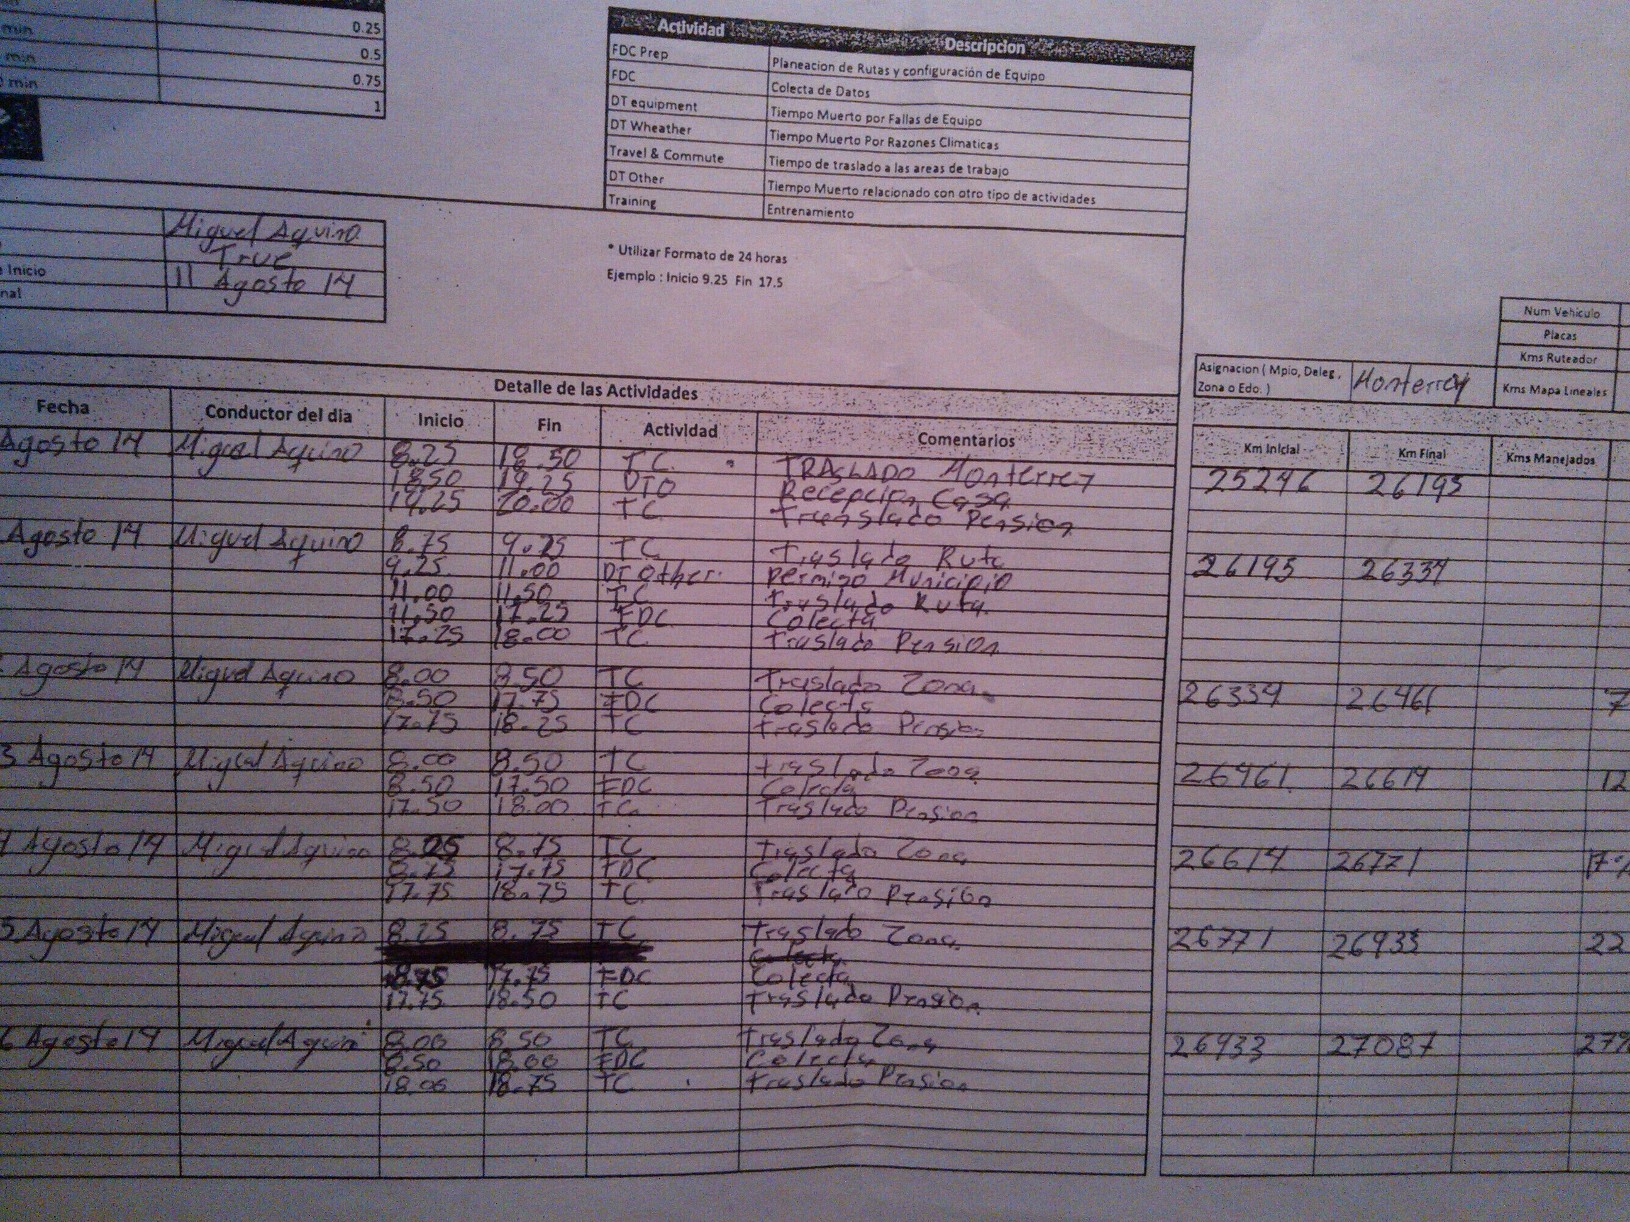 min 0.25
min 0.5
0 min 0.75
1
Actividad Descripcion
FDC Prep Planeacion de Rutas y configuración de Equipo
FDC Colecta de Datos
DT equipment Tiempo Muerto por Fallas de Equipo
DT Wheather Tiempo Muerto Por Razones Climaticas
Travel & Commute Tiempo de traslado a las areas de trabajo
DT Other Tiempo Muerto relacionado con otro tipo de actividades
Training Entrenamiento
Miguel Aquino
True
Inicio 11 Agosto 14
nal
* Utilizar Formato de 24 horas
Ejemplo : Inicio 9.25 Fin 17.5
Num Vehiculo
Placas
Kms Ruteador
Kms Mapa Lineales
Asignacion ( Mpio, Deleg , Zona o Edo. ) Monterrey
Detalle de las Actividades
Fecha Conductor del dia Inicio Fin Actividad Comentarios Km Inicial Km Final Kms Manejados
Agosto 14 Miguel Aquino 8.25 18.50 TC. TRASLADO Monterrey 25246 26195
18.50 19.25 DTO Recepcion Casa
19.25 20.00 TC Translado Pension
Agosto 14 Miguel Aquino 8.75 9.25 TC Traslado Ruta 26195 26334
9.25 11.00 DT Other. Permiso Municipio
11.00 11.50 TC Traslado Ruta.
11.50 17.25 FDC Colecta
17.25 18.00 TC Traslado Pension
Agosto 14 Miguel Aquino 8.00 8.50 TC Traslado Zona. 26334 26461 7
8.50 17.75 FDC Colecta
17.75 18.25 TC Traslado Pension
3 Agosto 14 Miguel Aquino 8.00 8.50 TC Traslado Zona 26461 26614 12
8.50 17.50 FDC Colecta
17.50 18.00 TC. Traslado Pension
4 Agosto 14 Miguel Aquino 8.25 8.75 TC Traslado Zona 26614 26771
8.75 17.75 FDC Colecta
17.75 18.75 TC. Traslado Pension
5 Agosto 14 Miguel Aquino 8.25 8.75 TC Traslado Zona. 26771 26933 22
Colecta
8.75 17.75 FDC Colecta
17.75 18.50 TC Traslado Pension
6 Agosto 14 Miguel Aquin 8.00 8.50 TC Traslado Zona 26933 27087
8.50 18.00 FDC Colecta
18.00 18.75 TC. Traslado Pension